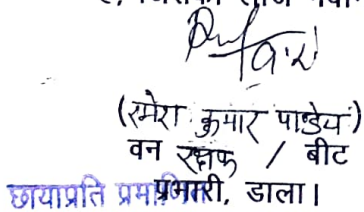 (रमेश कुमार पाण्डेय)
वन रक्षक / बीट
प्रभारी, डाला।
छायाप्रति प्रमाणित